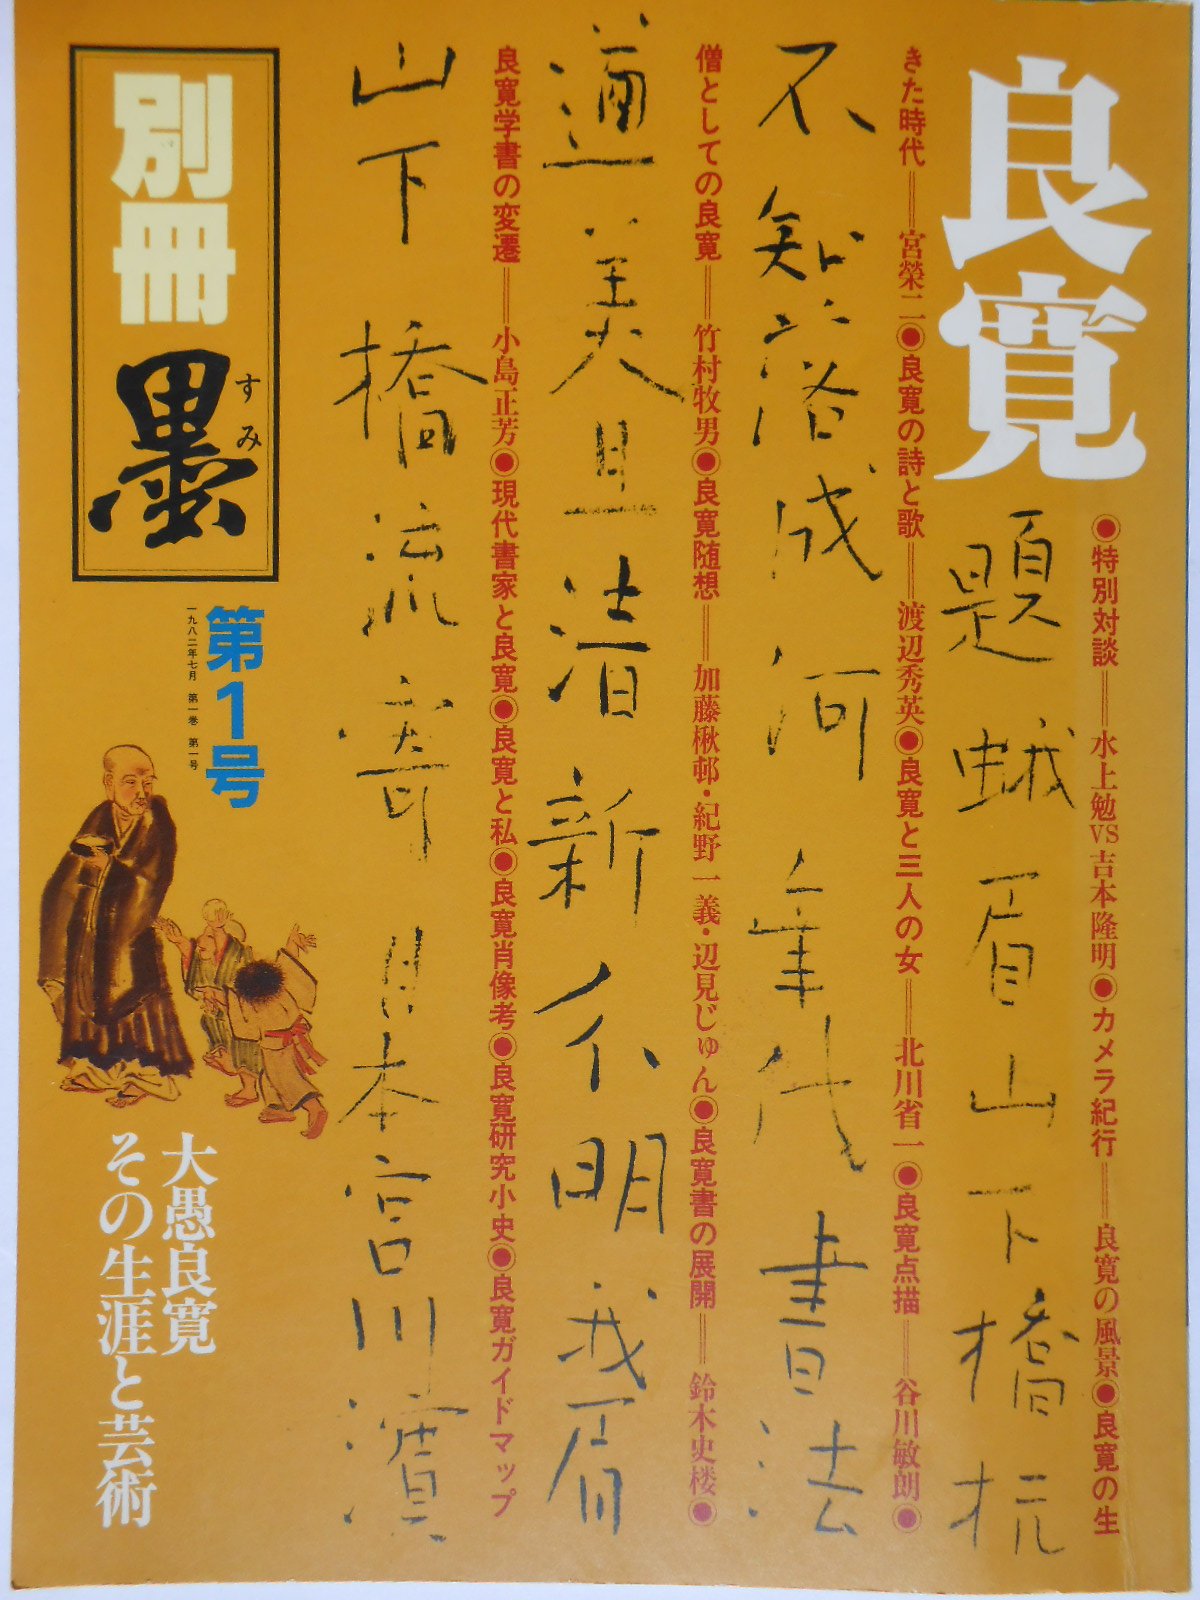 良寛
◉特別対談＝水上勉VS吉本隆明◉カメラ紀行＝良寛の風景◉良寛の生
題蛾眉山下橋杭
きた時代＝宮榮二◉良寛の詩と歌＝渡辺秀英◉良寛と三人の女＝北川省一◉良寛点描＝谷川敏朗◉
不知落成何年代書法
僧としての良寛＝竹村牧男◉良寛随想＝加藤楸邨・紀野一義・辺見じゅん◉良寛書の展開＝鈴木史楼◉
遒美且清新分明我眉
良寛学書の変遷＝小島正芳◉現代書家と良寛◉良寛と私◉良寛肖像考◉良寛研究小史◉良寛ガイドマップ
山下橋流寄日本宮川濱
別冊
墨
すみ
第1号
一九八二年七月 第一巻 第一号
大愚良寛
その生涯と芸術